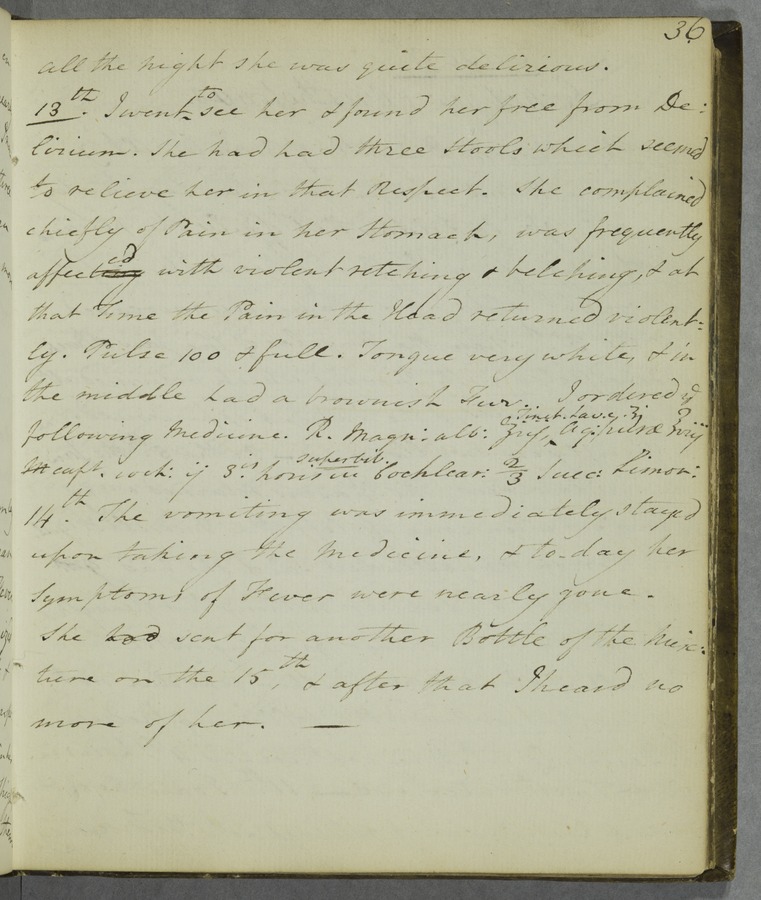 36
all the night she was quite delirious.
13th. I went to see her & found her free from De:
lirium. She had had three Stools which seemed
to relieve her in that Respect. She complained
chiefly of Pain in her Stomach, was frequently
affected with violent retching & belching, & at
that Time the Pain in the Head returned violent:
ly. Pulse 100 & full. Tongue very white, & in
the middle had a brownish Fur. I ordered ye
Tinct. Lav. c. ʒj
following Medicine. R. Magn: alb: ʒijſs, Aq: puræ ℥vij
capt. coch: ij 3is horis superbib. Cochlear: 2/3 Succ: Limon:
14th. The vomiting was immediately stayed
upon taking the medicine, & to-day her
Symptoms of Fever were nearly gone.
She had sent for another Bottle of the mix:
ture on the 15th, & after that I heard no
more of her. —